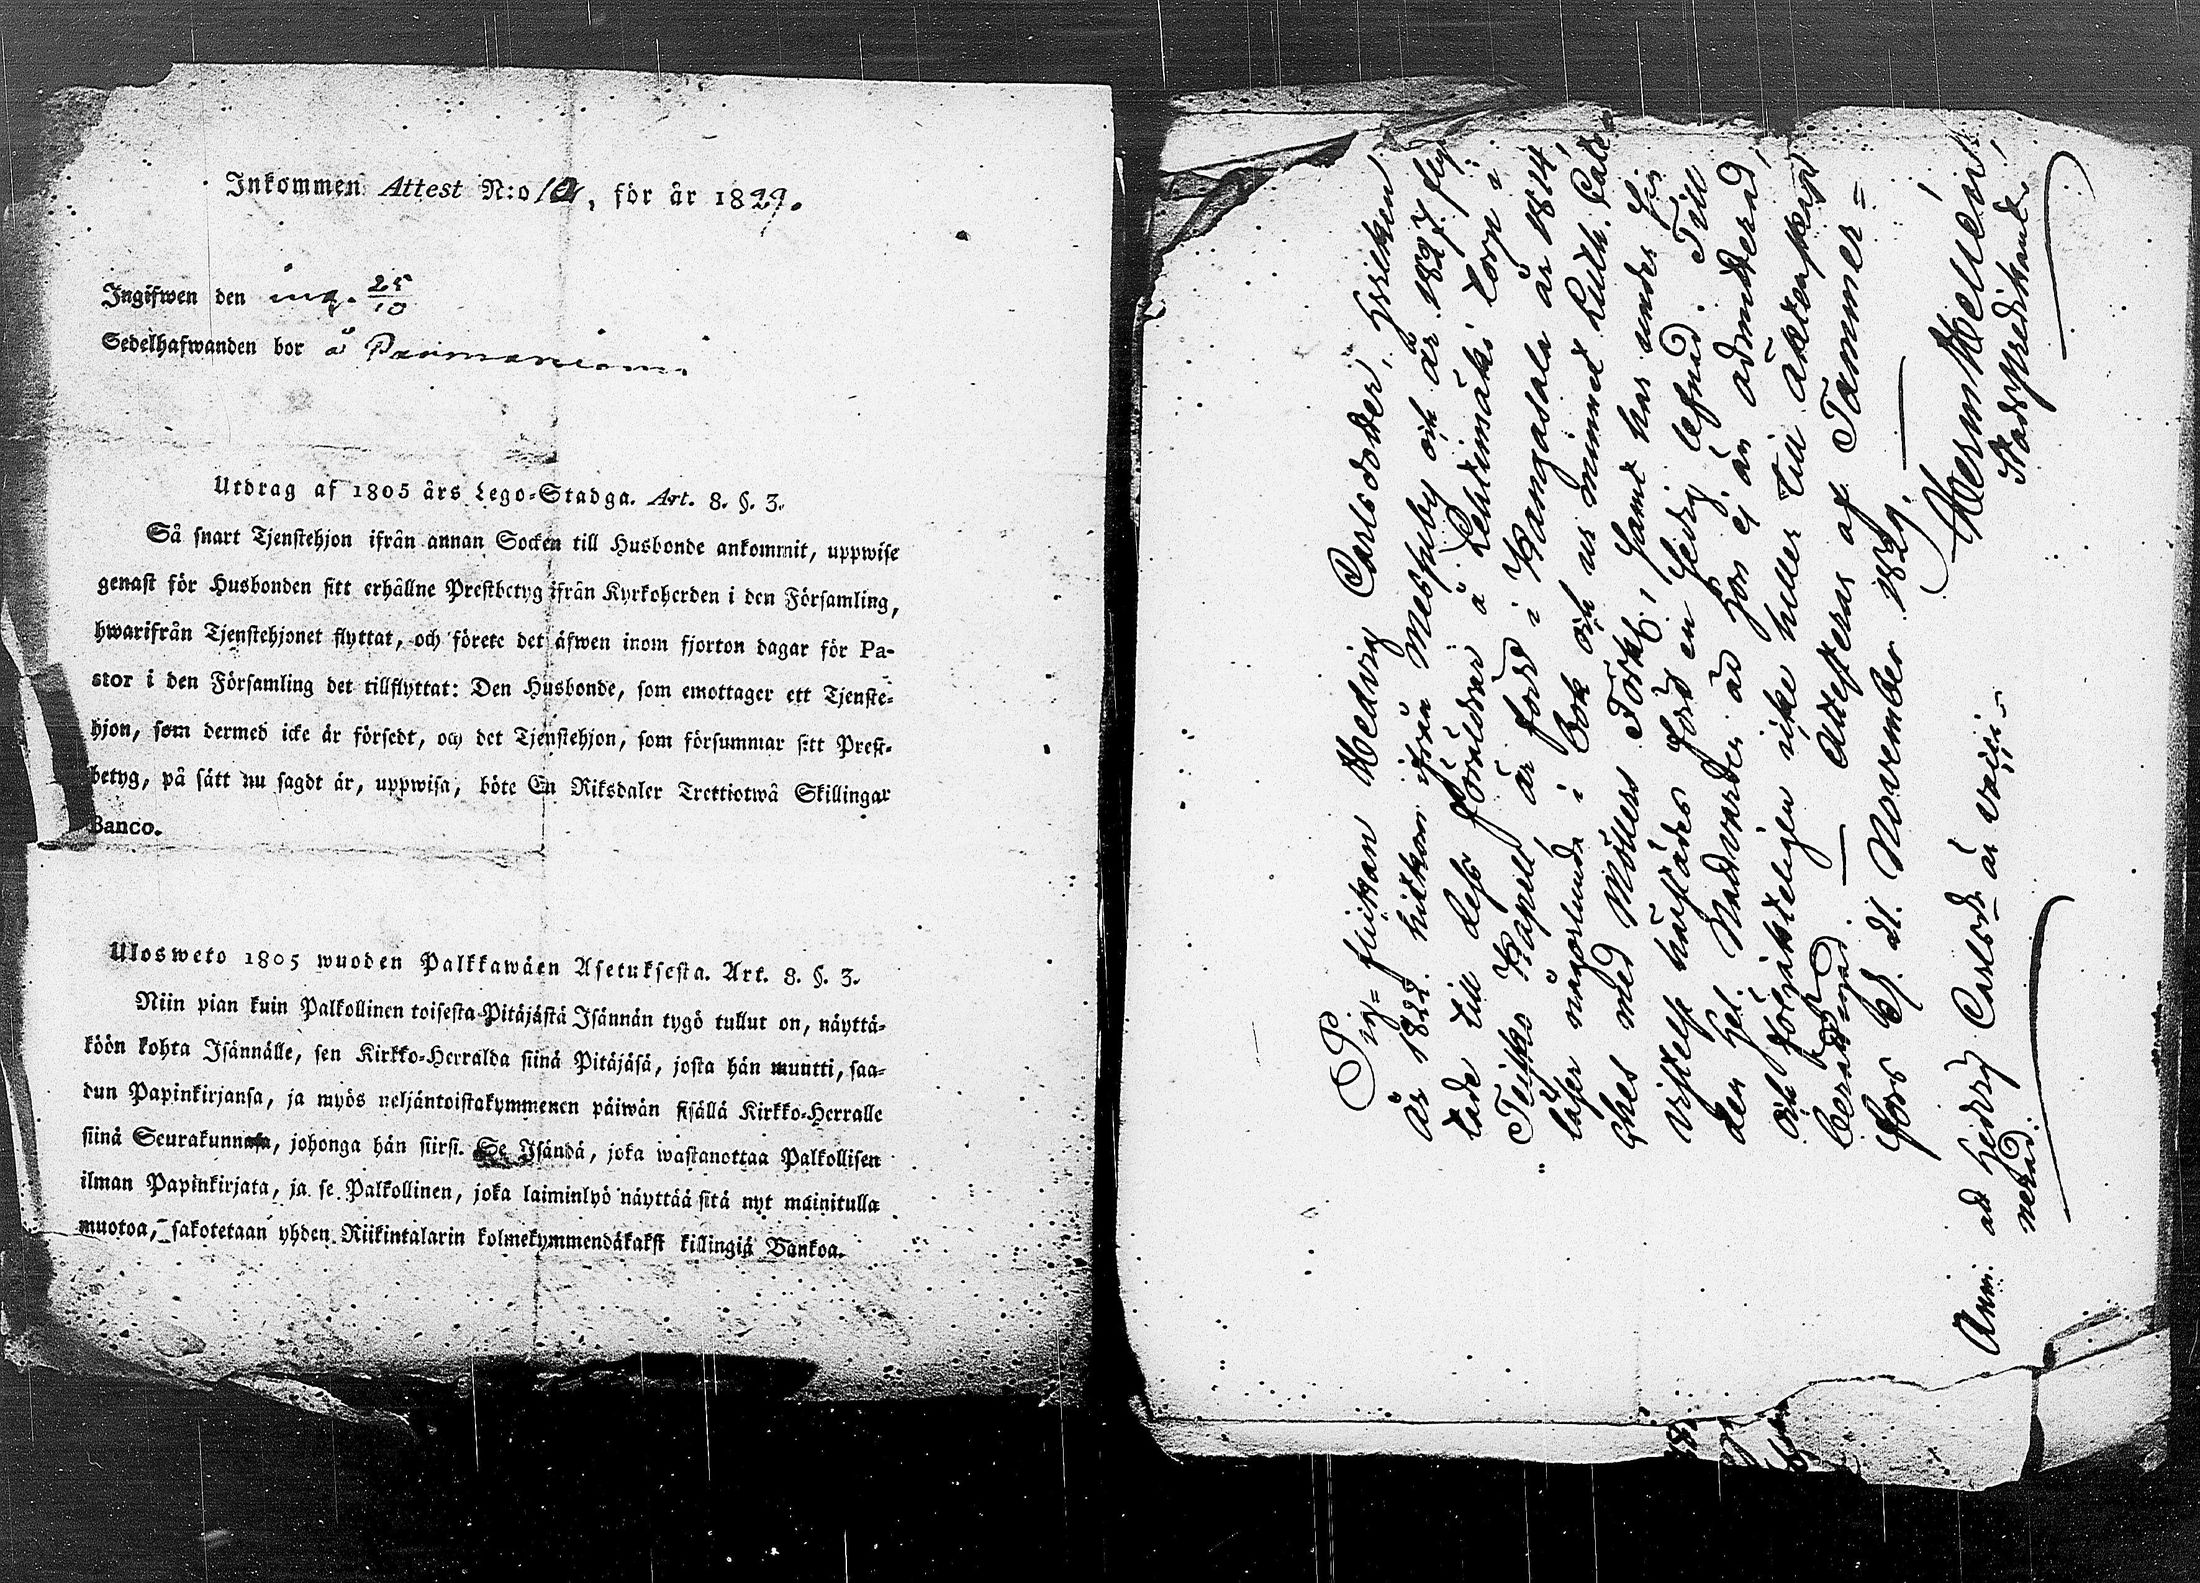 Inkommen Attest N:o 10, för år 1829.
Ingifwen den ing. 25/10
Sedelhafwanden bor å
Utdrag af 1805 års Lego-Stadga. Art. 8. §. 3.
Så snart Tjenstehjon ifrån annan Socken till Husbonde ankommit, uppwise
genast för Husbonden sitt erhållne Prestbetyg ifrån Kyrkoherden i den Församling,
hwarifrån Tjenstehjonet flyttat, och förete det äfwen inom fjorton dagar för Pa-
stor i den Församling det tillflyttat: Den Husbonde, som emottager ett Tjenste-
hjon, som dermed icke är försedt, och det Tjenstehjon, som försummar sitt Prest-
betyg, på sätt nu sagdt är, uppwisa, böte En Riksdaler Trettiotwå Skillingar
Banco.
Ulosweto 1805 wuoden Palkkawäen Asetuksesta. Art. 8. §. 3.
Niin pian kuin Palkollinen toisesta Pitäjästä Isännän tygö tullut on, näyttä-
köön kohta Isännälle, sen Kirkko-Herralda siinä Pitäjäsä, josta hän muutti, saa-
dun Papinkirjansa, ja myös neljäntoistakymmenen päiwän sisällä Kirkko-Herralle
siinä Seurakunnasa, johonga hän siirsi. Se Isändä, joka wastanottaa Palkollisen
ilman Papinkirjata, ja se Palkollinen, joka laiminlyö näyttää sitä nyt mainitulla
muotoa, sakotetaan yhden Riikintalarin kolmekymmendäkaksi killingiä Bankoa.
Pig-flickan Hedvig Carlsdotter, hvilken
år 1822 hitkom ifrån Messuby och år 1827 flyt
tade till dess föräldrar å Lehtimäki torp i
Teisko Kapell är född i Kangasala år 1814,
läser någorlunda i bok och ur minnet Luth. Cate
ches med Möllers Förkl., samt har under sin
vistelse härstädes fört en sedig lefnad. Till
den Hel. Nattvarden är hon ej än admitterad,
och följakteligen icke heller till äktenskap
berättigad. — Attesteras af Tammer=
fors d. November 1829.
Herm Hellén
Stadspredikant.
Anm. att Hedvig Carlsdr är vacci-
nerad.